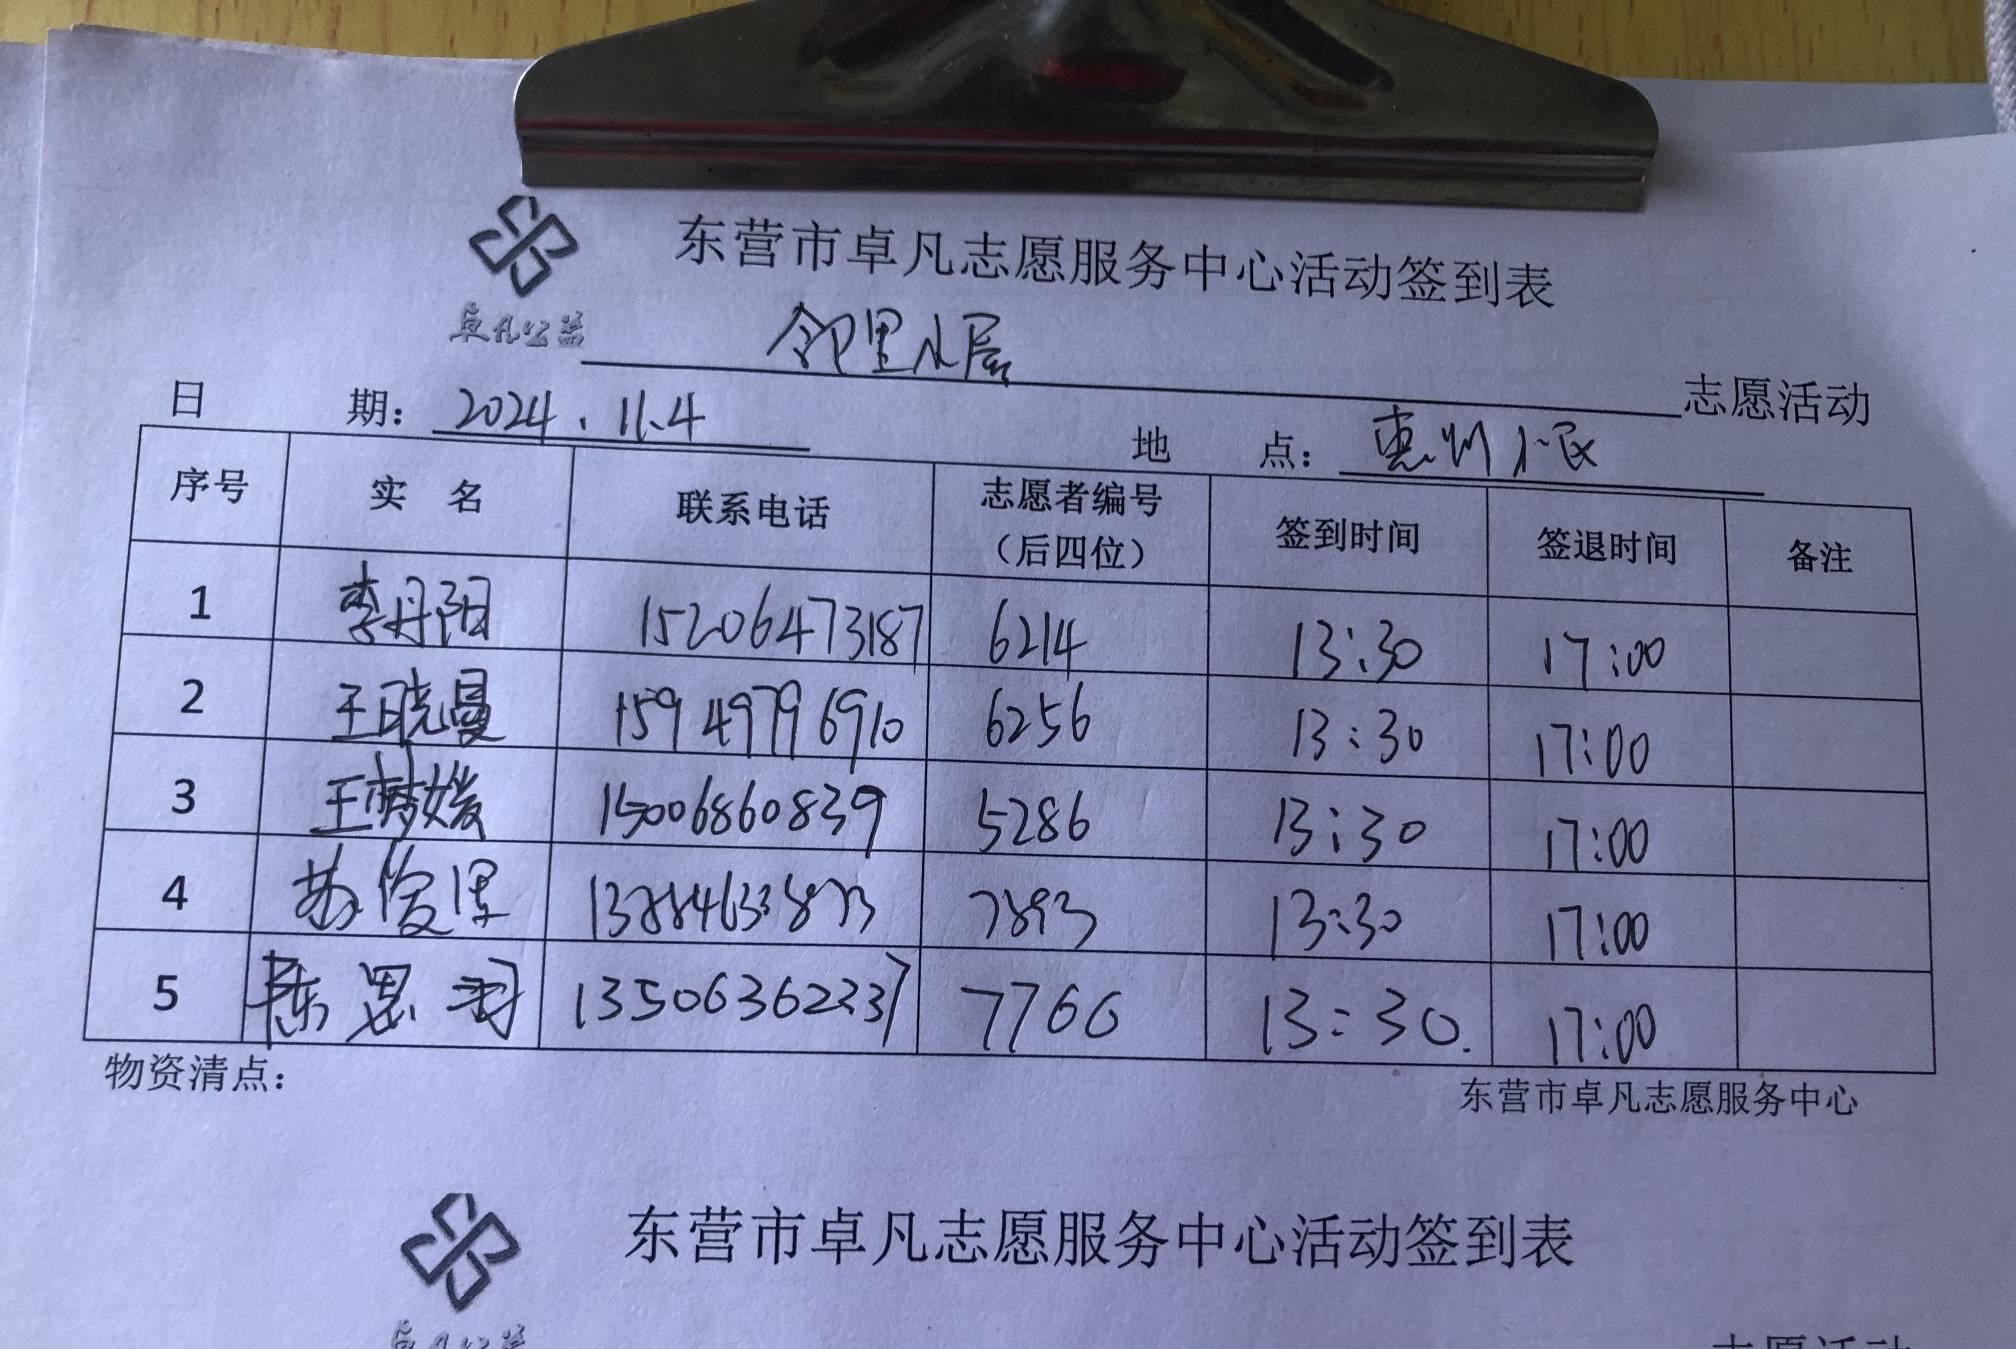 东营市卓凡志愿服务中心活动签到表
卓凡公益
邻里小屋 志愿活动
日 期： 2024.11.4 地 点： 惠州小区
序号 实 名 联系电话 志愿者编号（后四位） 签到时间 签退时间 备注
1 李丹阳 15206473187 6214 13:30 17:00
2 王晓曼 15949796910 6256 13:30 17:00
3 王梦媛 15006860839 5286 13:30 17:00
4 苏俊 7893 13:30 17:00
5 陈思羽 13506362237 7766 13:30. 17:00
物资清点：
东营市卓凡志愿服务中心
东营市卓凡志愿服务中心活动签到表
卓凡公益
志愿活动